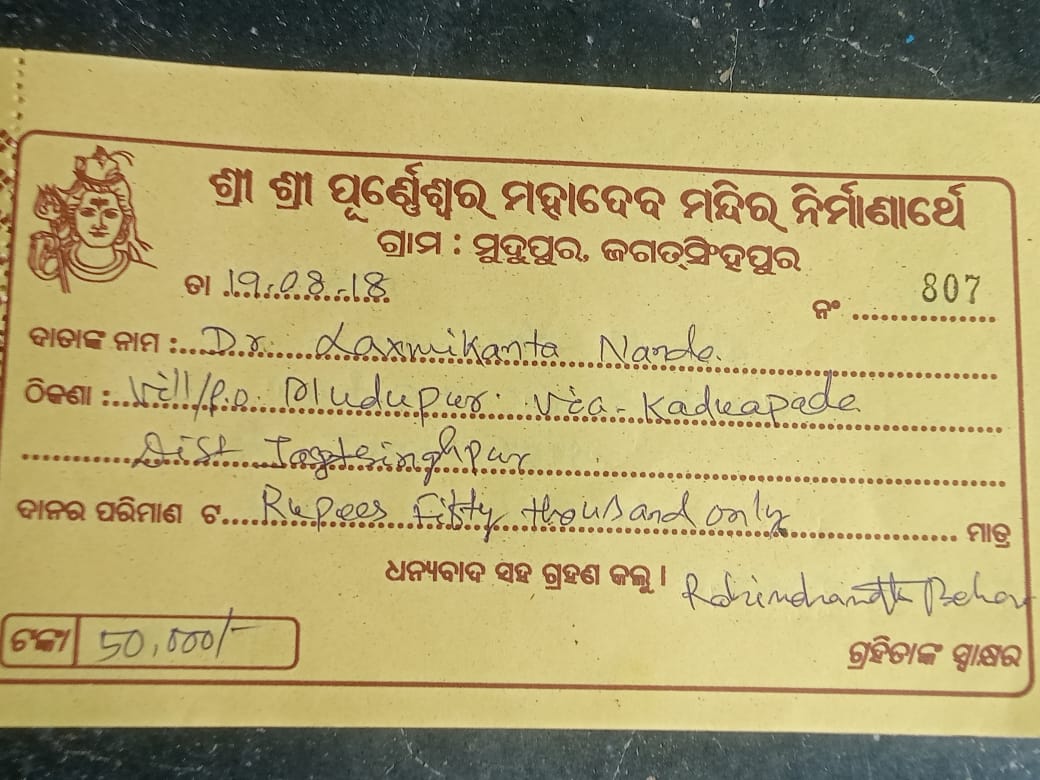 ଶ୍ରୀ ଶ୍ରୀ ପୂର୍ଣ୍ଣେଶ୍ୱର ମହାଦେବ ମନ୍ଦିର ନିର୍ମାଣାର୍ଥେ
ଗ୍ରାମ : ମୁଦୁପୁର, ଜଗତ୍‌ସିଂହପୁର
ତା 19.08.18
ନଂ 807
ଦାତାଙ୍କ ନାମ : Dr. Laxmikanta Nanda.
ଠିକଣା : Vill/P.O. Mudupur. Via - Kaduapada
Dist Jagtsinghpur
ଦାନର ପରିମାଣ ଟ Rupees Fifty thousand only ମାତ୍ର
ଧନ୍ୟବାଦ ସହ ଗ୍ରହଣ କଲୁ ।
ଟଙ୍କା 50,000/-
ଗ୍ରହିତାଙ୍କ ସ୍ୱାକ୍ଷର